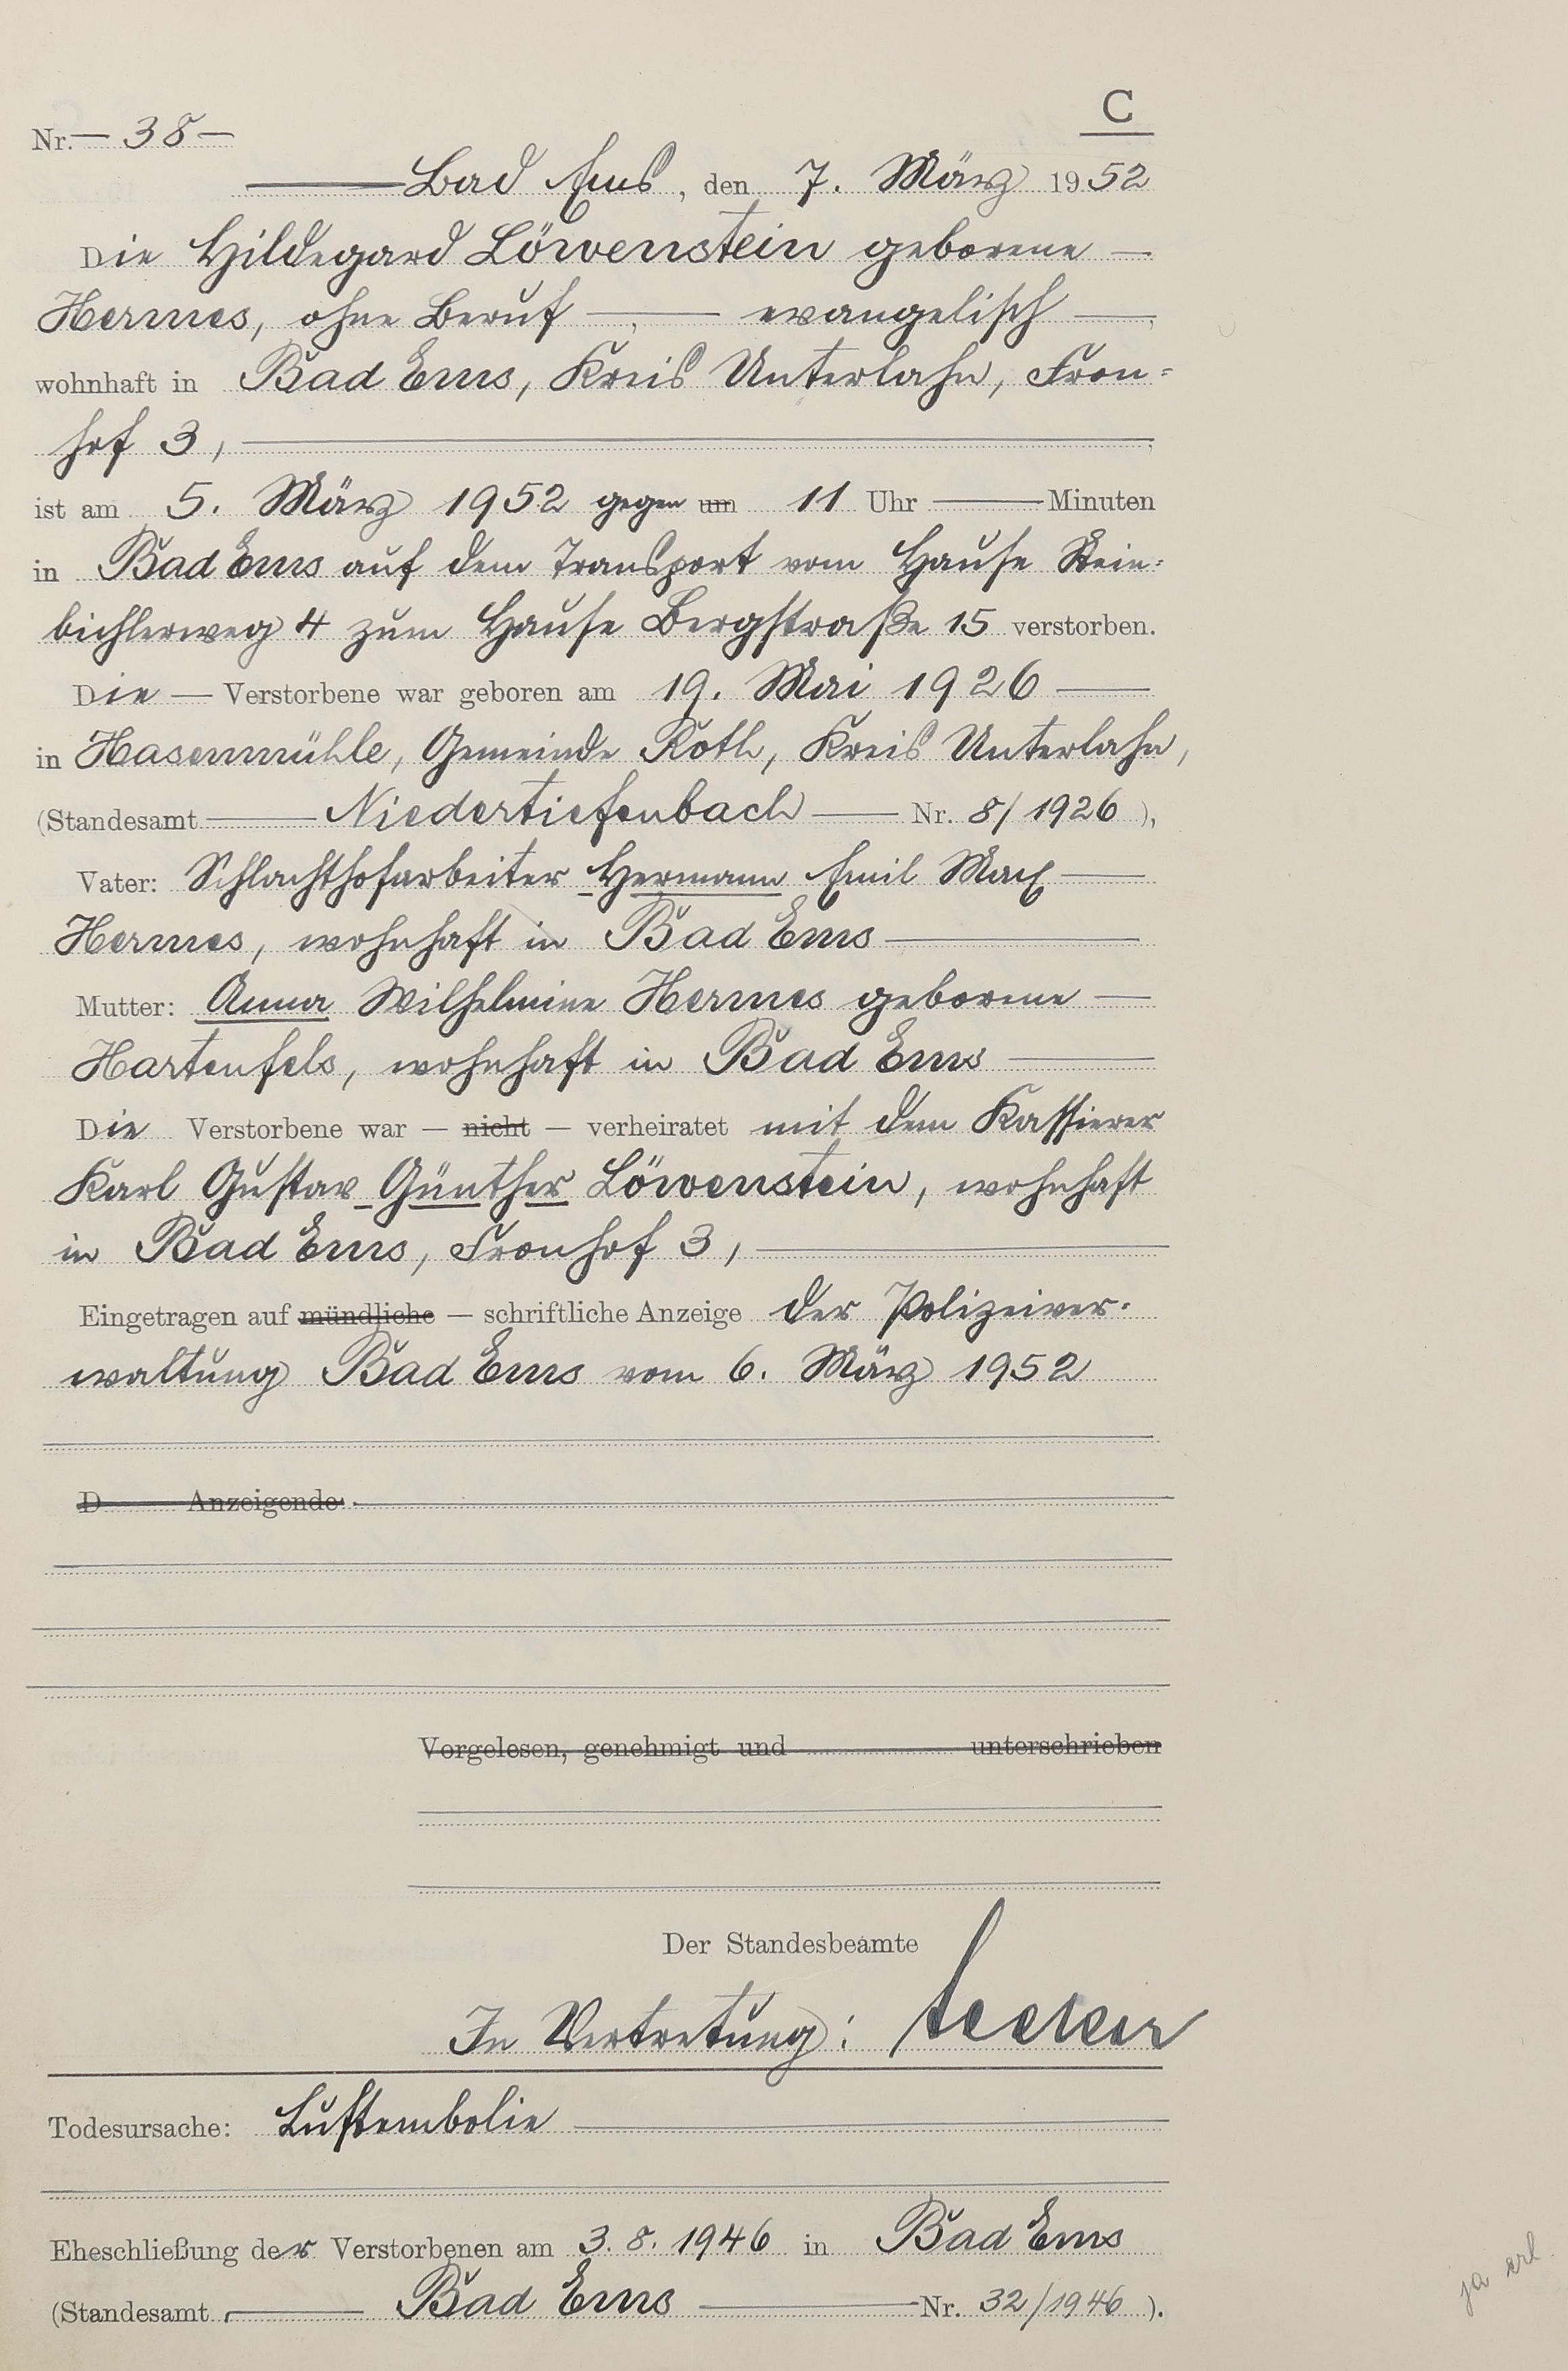 C
Nr. — 38 —
Bad Ems, den 7. März 1952
Die Hildegard Löwenstein geborene —
Hermes, ohne Beruf —, — evangelisch —,
wohnhaft in Bad Ems, Kreis Unterlahn, Fron=
hof 3,
ist am 5. März 1952 gegen um 11 Uhr — Minuten
in Bad Ems auf dem Transport vom Hause Stein=
bichlerweg 4 zum Hause Bergstraße 15 verstorben.
Die — Verstorbene war geboren am 19. Mai 1926 —
in Hasenmühle, Gemeinde Roth, Kreis Unterlahn,
(Standesamt — Niedertiefenbach — Nr. 8/1926),
Vater: Schlachthofarbeiter Hermann Emil Max —
Hermes, wohnhaft in Bad Ems —
Mutter: Anna Wilhelmine Hermes geborene —
Hartenfels, wohnhaft in Bad Ems —
Die Verstorbene war — nicht — verheiratet mit dem Kassierer
Karl Gustav Günther Löwenstein, wohnhaft
in Bad Ems, Fronhof 3, —
Eingetragen auf mündliche — schriftliche Anzeige der Polizeiver=
waltung Bad Ems vom 6. März 1952
D Anzeigende
Vorgelesen, genehmigt und unterschrieben
Der Standesbeamte
In Vertretung:
Todesursache: Luftembolie —
Eheschließung der Verstorbenen am 3.8.1946 in Bad Ems
(Standesamt — Bad Ems — Nr. 32/1946).
ja erl.